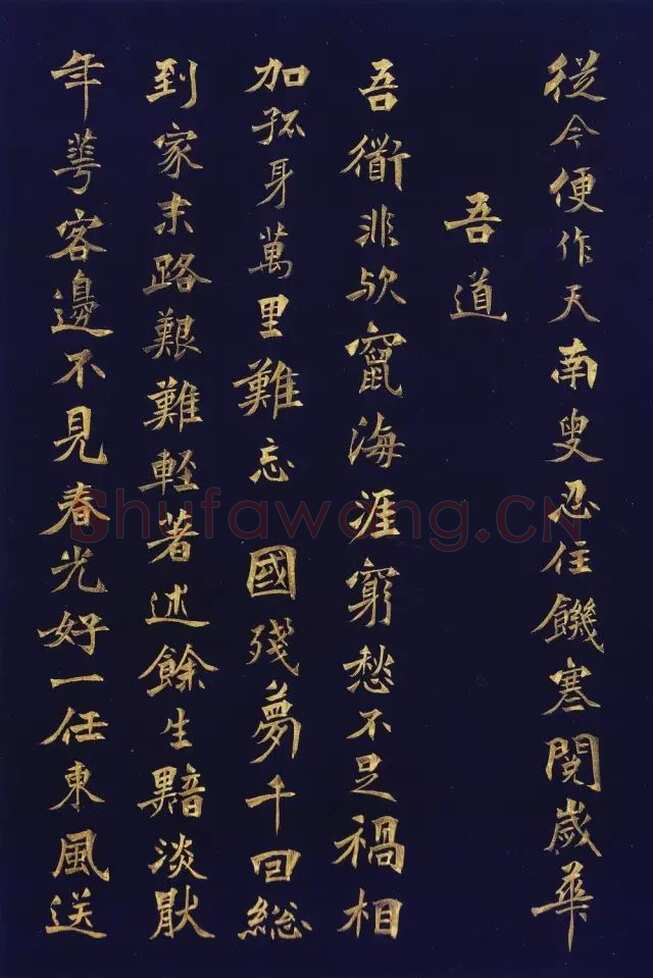 從今便作天南叟忍住饑寒閱歲華
吾道
吾衜非欤竄海涯窮愁不足禍相
加孤身萬里難忘 國殘夢千回総
到家末路艱難軽著述餘生黯淡猒
年華客邊不見春光好一任東風送
Shufawang.CN